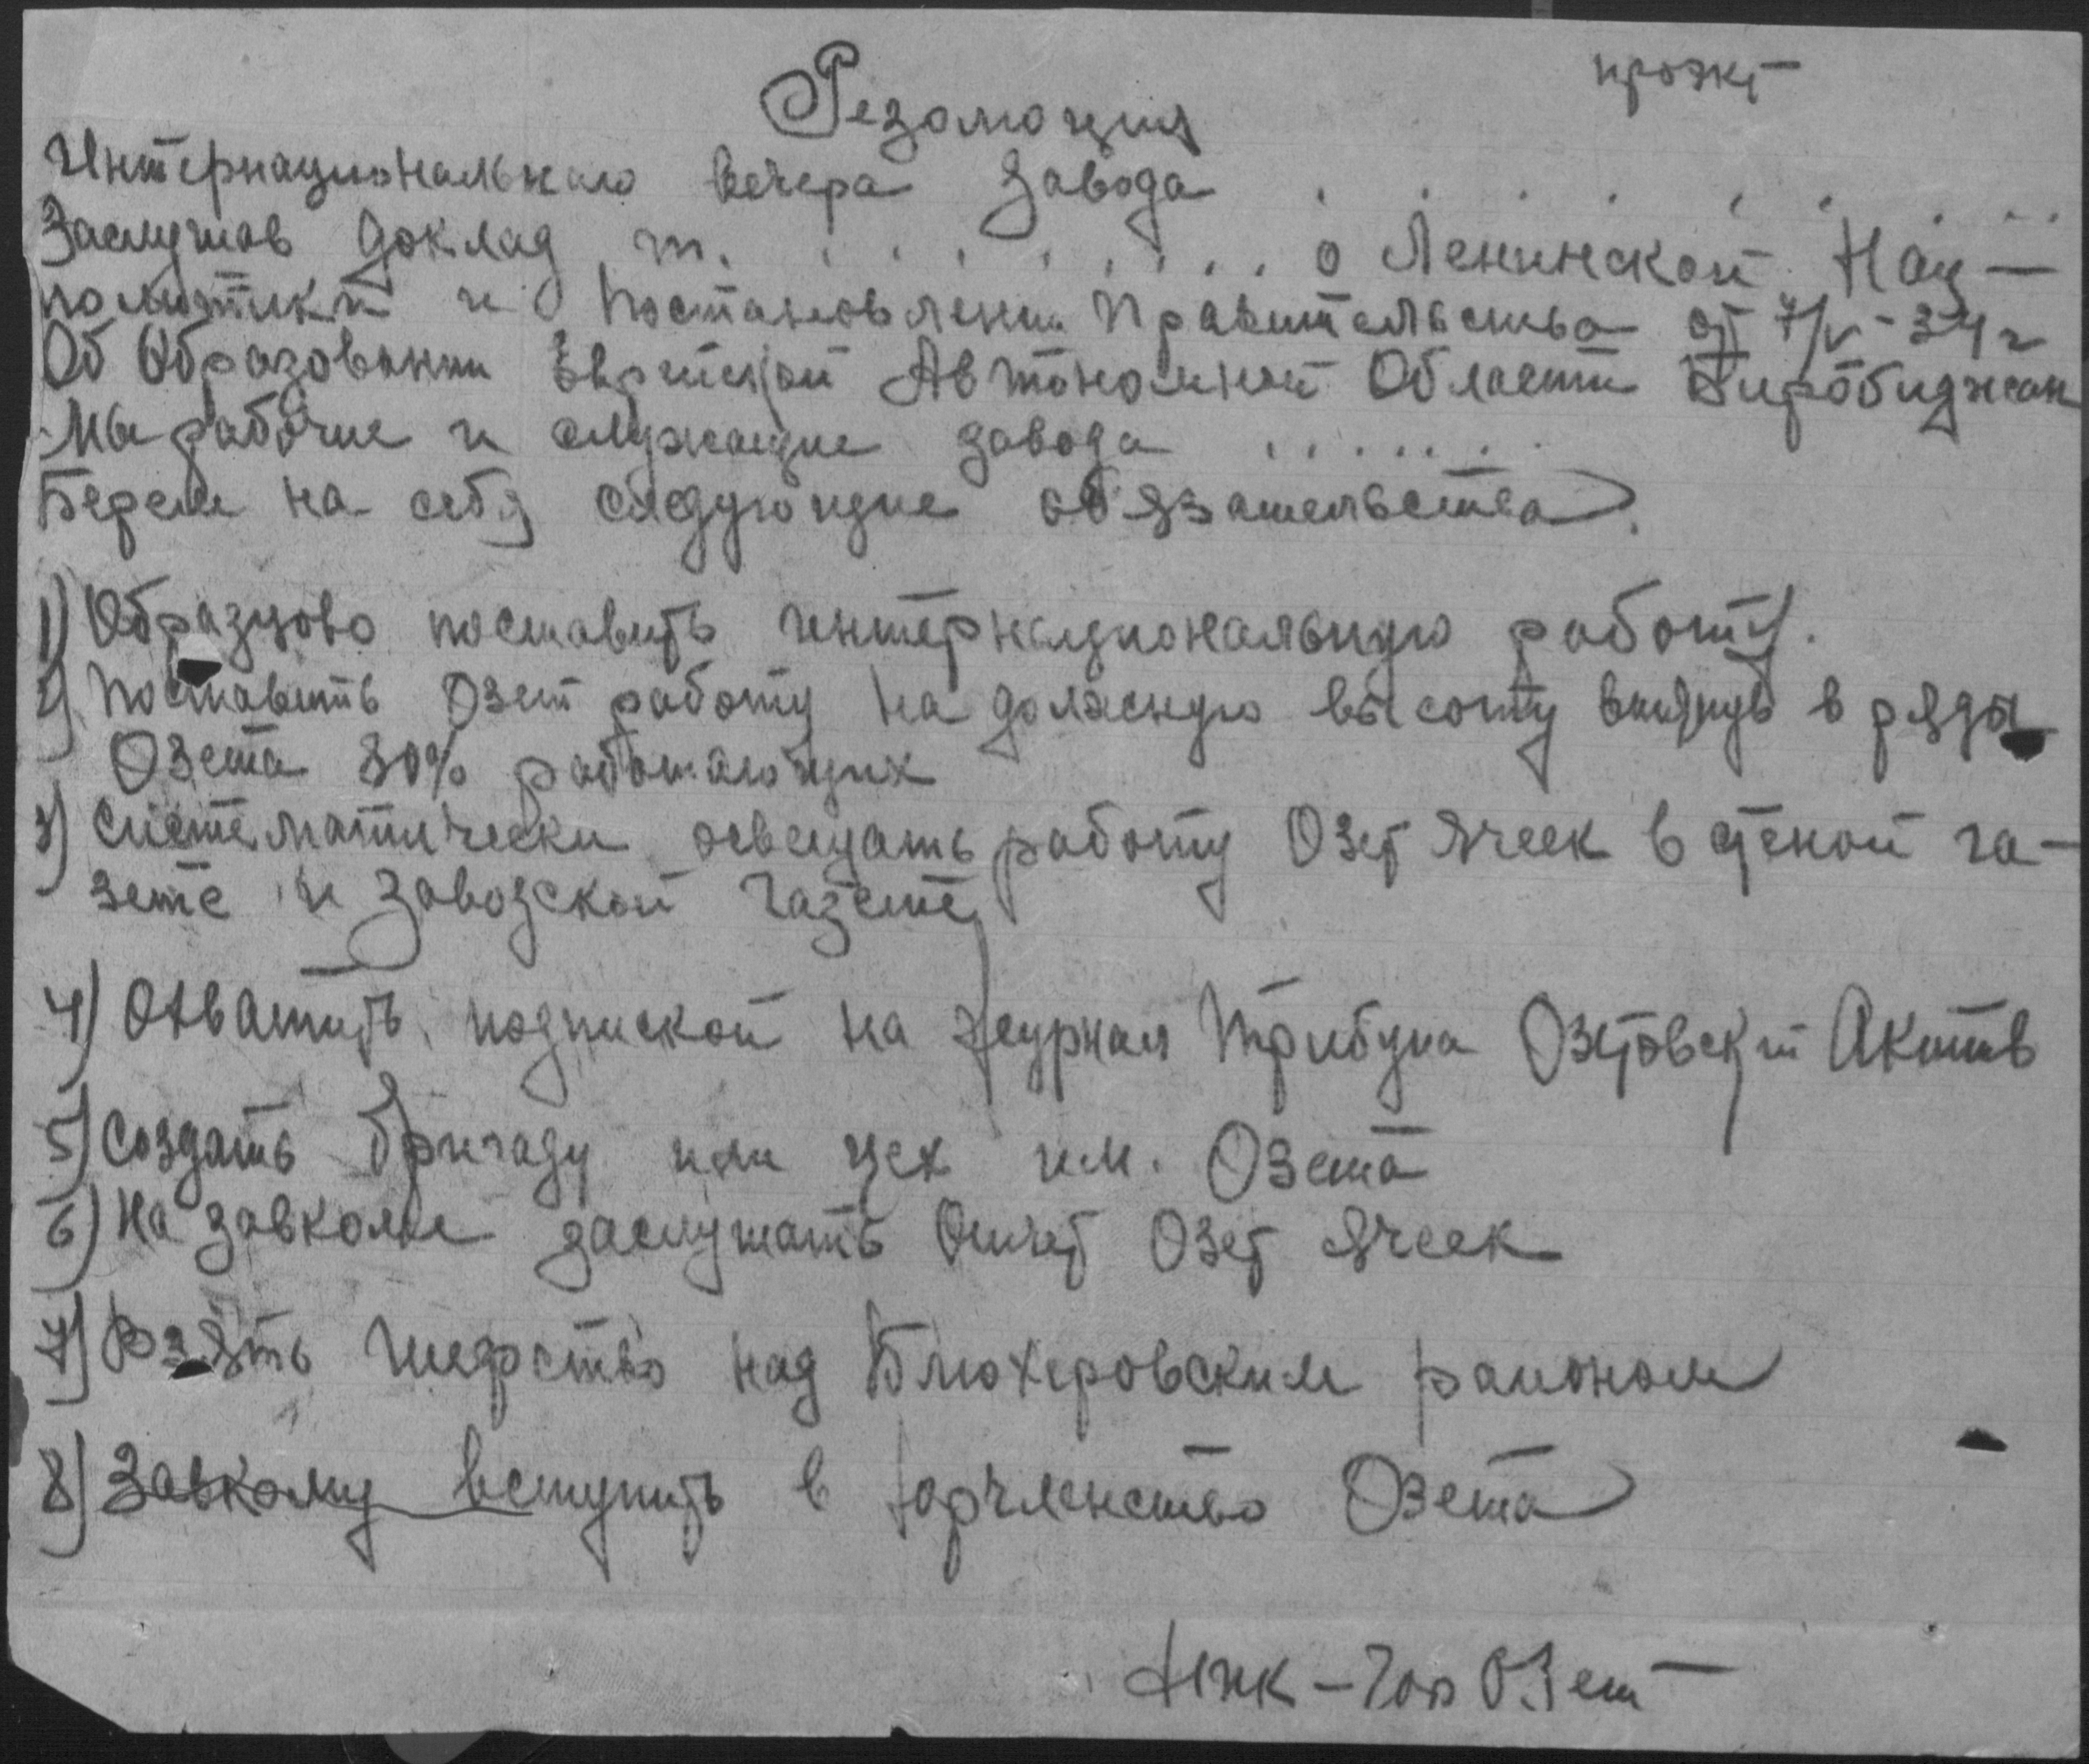 проэкт
Резолюция
Интернационального вечера завода . . . . . . . . .
Заслушав доклад т. . . . . . . . . о Ленинской Нац—
политики и Постановлении Правительства от 7/V-34 г
Об Образовании Еврейской Автономной Области Биробиджан
Мы рабочие и служащие завода . . . . . .
Берем на себя следующие обязательства.
1) Образцово поставить интернациональную работу.
2) Поставить Озет работу на должную высоту втянуть в ряды
Озета 80% работающих
3) Систематически освещать работу Озет Ячеек в стеной га-
зете и заводской газете
4) Охватить подпиской на журнал Трибуна Озетовский Актив
5) Создать бригаду или цех им. Озета
6) На завкоме заслушать Отчет Озет Ячеек
7) Взять Шефство над Блюхеровским районом
8) Завкому вступить в юрчленство Озета
– Гор ОЗет